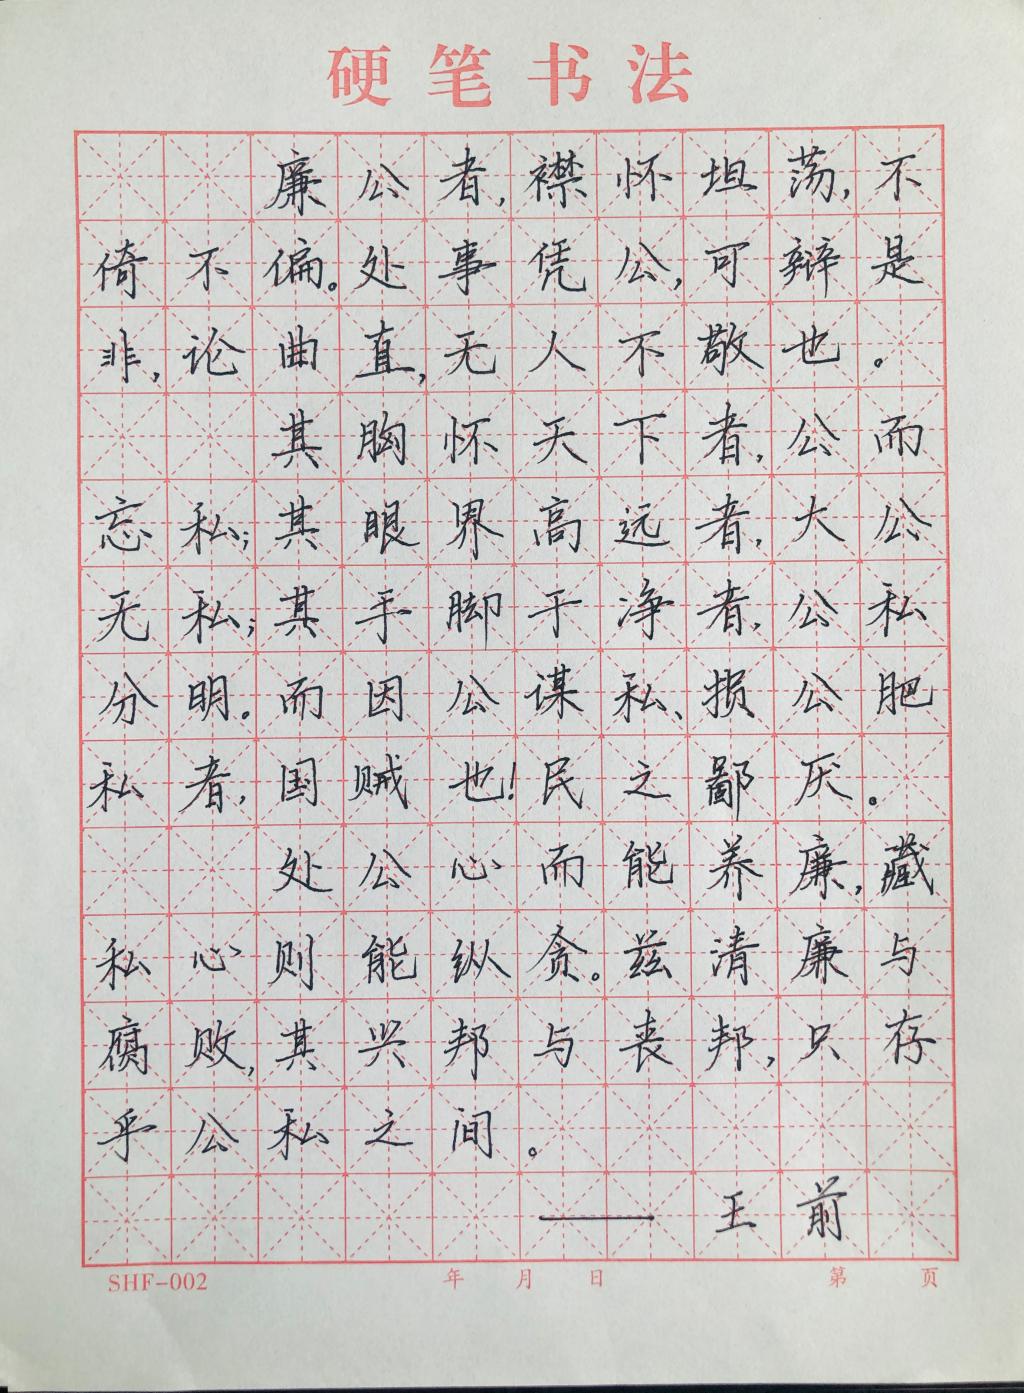 硬笔书法
廉公者,襟怀坦荡,不
倚不偏。处事凭公,可辩是
非,论曲直,无人不敬也。
其胸怀天下者,公而
忘私;其眼界高远者,大公
无私;其手脚干净者,公私
分明。而因公谋私、损公肥
私者,国贼也!民之鄙厌。
处公心而能养廉,藏
私心则能纵贪。兹清廉与
腐败,其兴邦与丧邦,只存
乎公私之间。
——王前
SHF-002 年 月 日 第 页